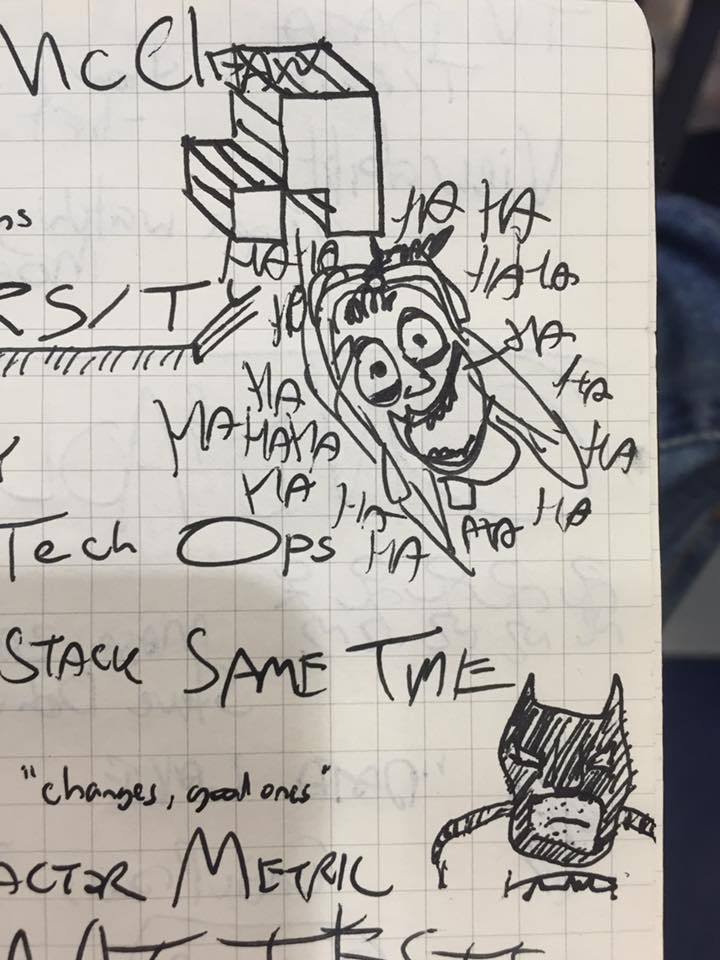 McClean
ns
HA HA
HA HA
HAHA
RSITY
HA
HA
HA
HA
HA HAHA
HA
HA
HA
HA
HA HA
Tech Ops
HA
STACK SAME TIME
"changes, good ones"
ACTOR METRIC